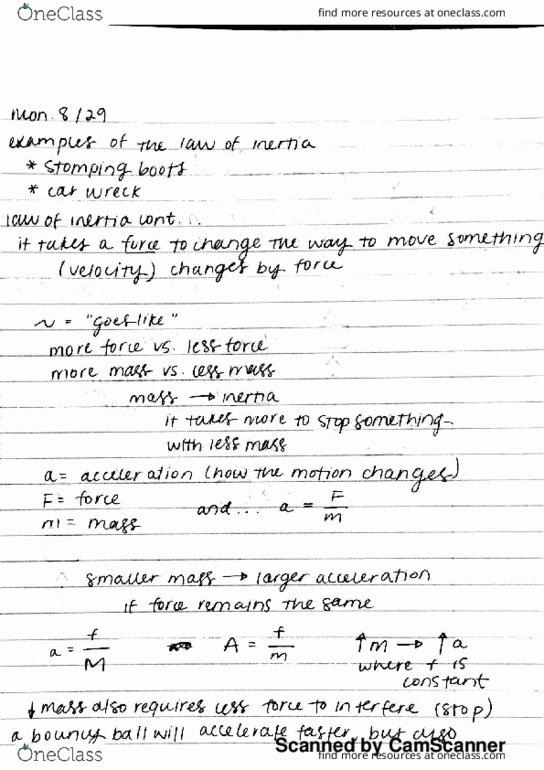 OneClass
find more resources at oneclass.com
Mon. 8/29
examples of the law of inertia
* stomping boots
* car wreck
law of inertia cont...
it takes a force to change the way to move something
(velocity) changes by force
~ = "goes like"
more force vs. less force
more mass vs. less mass
mass → inertia
it takes more to stop something
with less mass
a = acceleration (how the motion changes)
F = force
and... a = F/m
m = mass
smaller mass → larger acceleration
if force remains the same
a = f/M A = f/m ↑m → ↑a
where f is
constant
↓ mass also requires less force to interfere (stop)
a bouncy ball will accelerate faster, but also
Scanned by CamScanner
OneClass
find more resources at oneclass.com